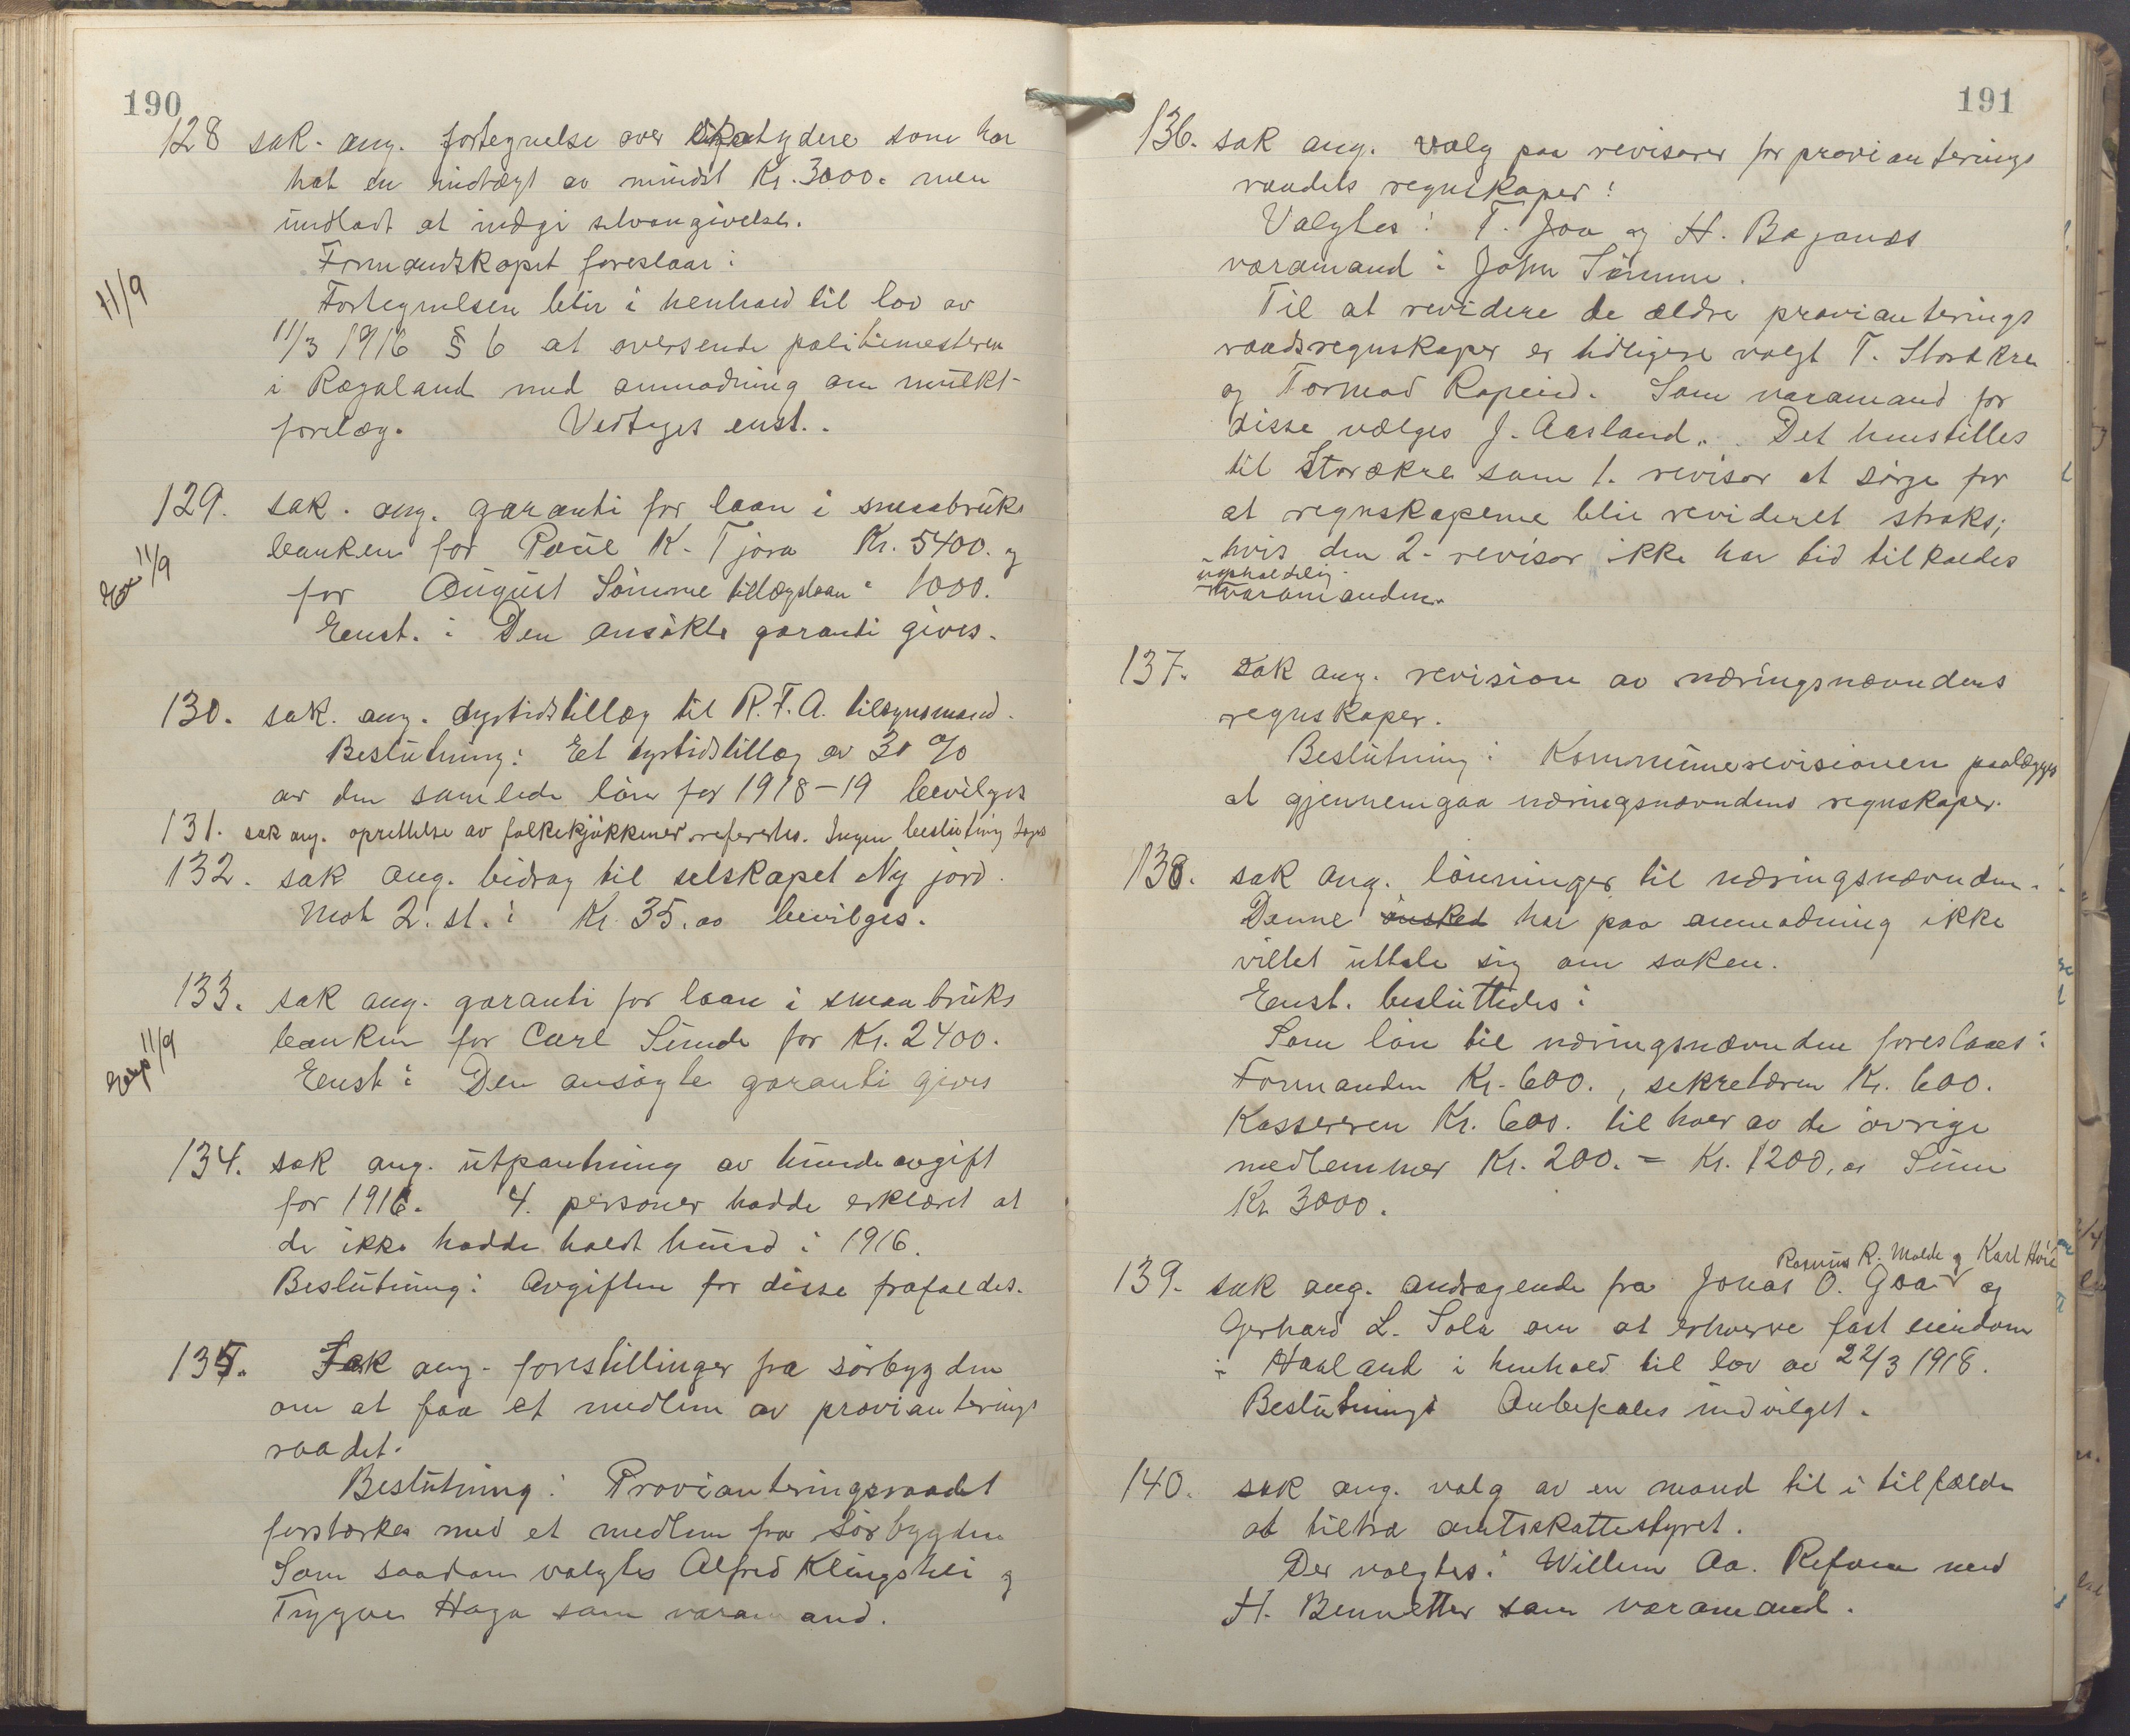 190
128 sak. ang. fortegnelse over skatydere som har
hat en indtægt av mindst Kr. 3000. men
undladt at indgi selvangivelse.
Formandskapet foreslaar:
11/9
Fortegnelsen blir i henhold til lov av
11/3 1916 § 6 at oversende politimesteren
i Rogaland med anmodning om mulkt-
forelæg. Vedtages enst..
129. sak. ang. garanti for laan i smaabruks
banken for Paul K. Tjora Kr. 5400. og
11/9
for August Sömme tillægslaan " 1000.
Enst.: Den ansökte garanti gives.
130. sak. ang. dyrtidstillæg til R.F.A. tilsynsmand.
Beslutning: Et dyrtidstillæg av 30 %
av den samlede lön for 1918-19 bevilges
131. sak ang. oprettelse av folkekjøkkener refereres. Ingen beslutning toges
132. sak ang. bidrag til selskapet Ny jord.
Mot 2. st.: Kr. 35.00 bevilges.
133. sak ang. garanti for laan i smaabruks
banken for Carl Sunde for Kr. 2400.
Exp 11/9
Enst: Den ansøgte garanti gives
134. sak ang. utpantning av hundeavgift
for 1916. 4. personer hadde erklæret at
de ikke hadde holdt hund i 1916.
Beslutning: Avgiften for disse frafaldes.
135. Sak ang. forestillinger fra sörbygden
om at faa et medlem av provianterings
raadet.
Beslutning: Provianteringsraadet
forsterkes med et medlem fra Sörbygden
Som saadan valgtes Alfred Klingshei og
Trygve Haga som varamand.
191
136. sak ang. valg paa revisorer for provianterings
raadets regnskaper:
Valgtes: T. Joa og H. Røyanes
varamand: John Sömme.
Til at revidere de ældre provianterings
raadsregnskaper er tidligere valgt T. Storækre
og Tormod Røpeid. Som varamand for
disse vælges J. Aasland. Det henstilles
til Storækre som 1. revisor at sörge for
at regnskaperne blir revideret straks;
hvis den 2. revisor ikke har tid tilkaldes
uopholdelig
varamanden.
137. sak ang. revision av næringsnævndens
regnskaper.
Beslutning: Kommunerevisionen paalægges
at gjennemgaa næringsnævndens regnskaper.
138. sak ang. lönninger til næringsnævnden.
Denne önsked har paa anmodning ikke
villet uttale sig om saken.
Enst. besluttedes:
Som lön til næringsnævnden foreslaaes:
Formanden Kr. 600., sekretæren Kr. 600.
Kassereren Kr. 600. til hver av de övrige
medlemmer Kr. 200. = Kr. 1200,00 Sum
Kr. 3000.
Rasmus R. Molde og Karl
139. sak ang. andragende fra Jonas O. Goa og
Gerhard L. Sola om at erhverve fast eiendom
i Haaland i henhold til lov av 22/3 1918.
Beslutning: Anbefales indvilget.
140. sak ang. valg av en mand til i tilfælde
at tiltræ amtsskattestyret.
Der valgtes: Willem Aa. Refven med
H. Bennetter som varamand.